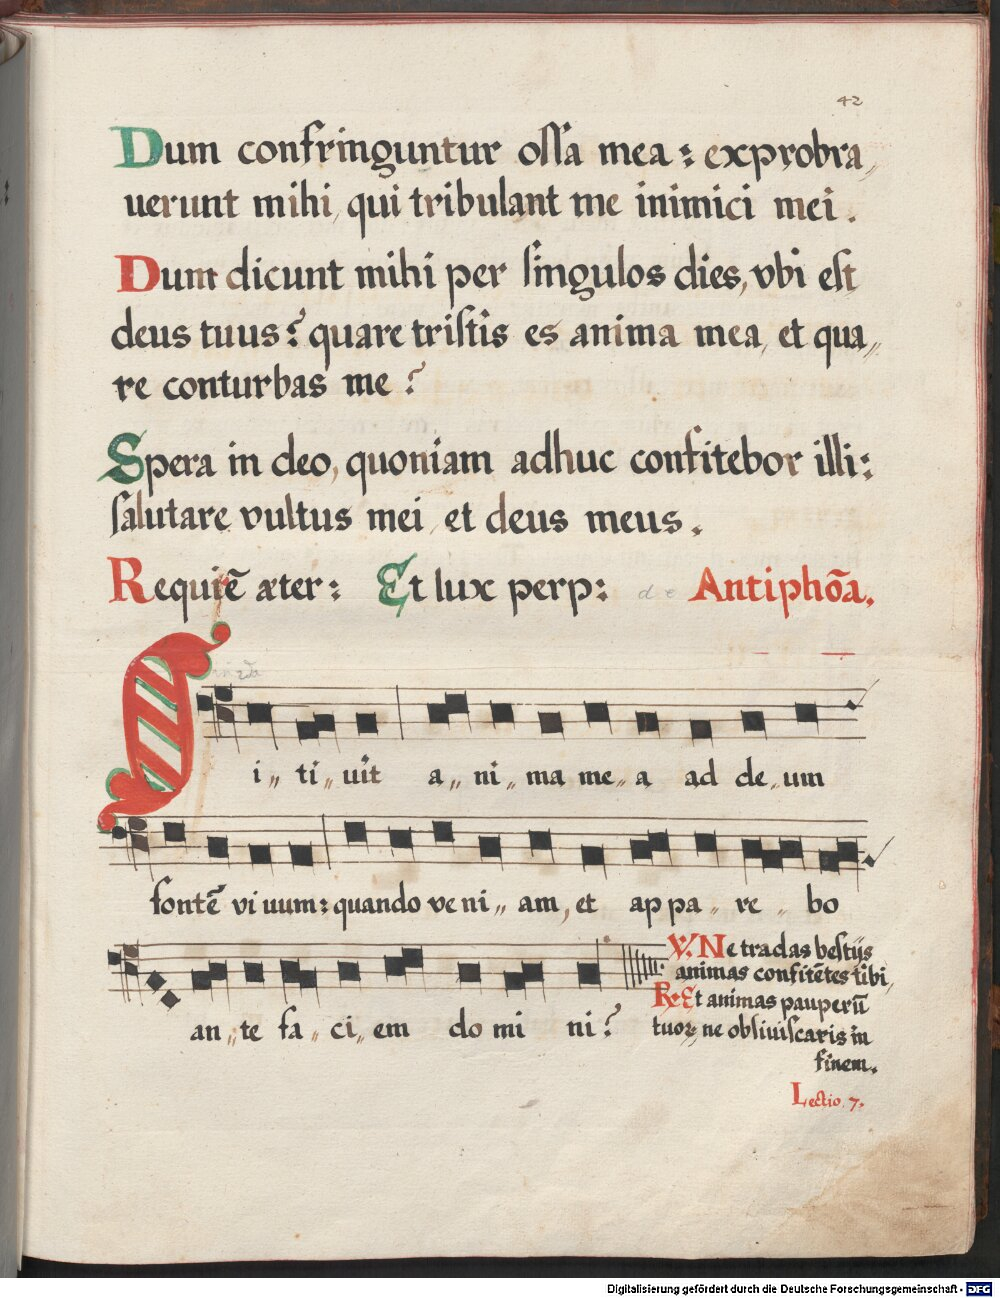 42
Dum confringuntur oſſa mea : exprobra,
uerunt mihi, qui tribulant me inimici mei.
Dum dicunt mihi per ſingulos dies, vbi eſt
deus tuus? quare triſtis es anima mea, et qua,,
re conturbas me?
Spera in deo, quoniam adhuc confitebor illi:
ſalutare vultus mei, et deus meus.
Requiē æter: Et lux perp: de Antiphōa.
Si,, ti,, uit a,, ni,, ma me,, a ad de,, um
fontē vi uum: quando ve ni,, am, et ap pa,, re,, bo
an,, te fa,, ci,, em do mi ni?
V. Ne tradas beſtijs
animas confitētes tibi,
R. Et animas pauperū
tuoꝝ, ne obliuiſcaris in
finem.
Lectio. 7.
Digitalisierung gefördert durch die Deutsche Forschungsgemeinschaft - DFG